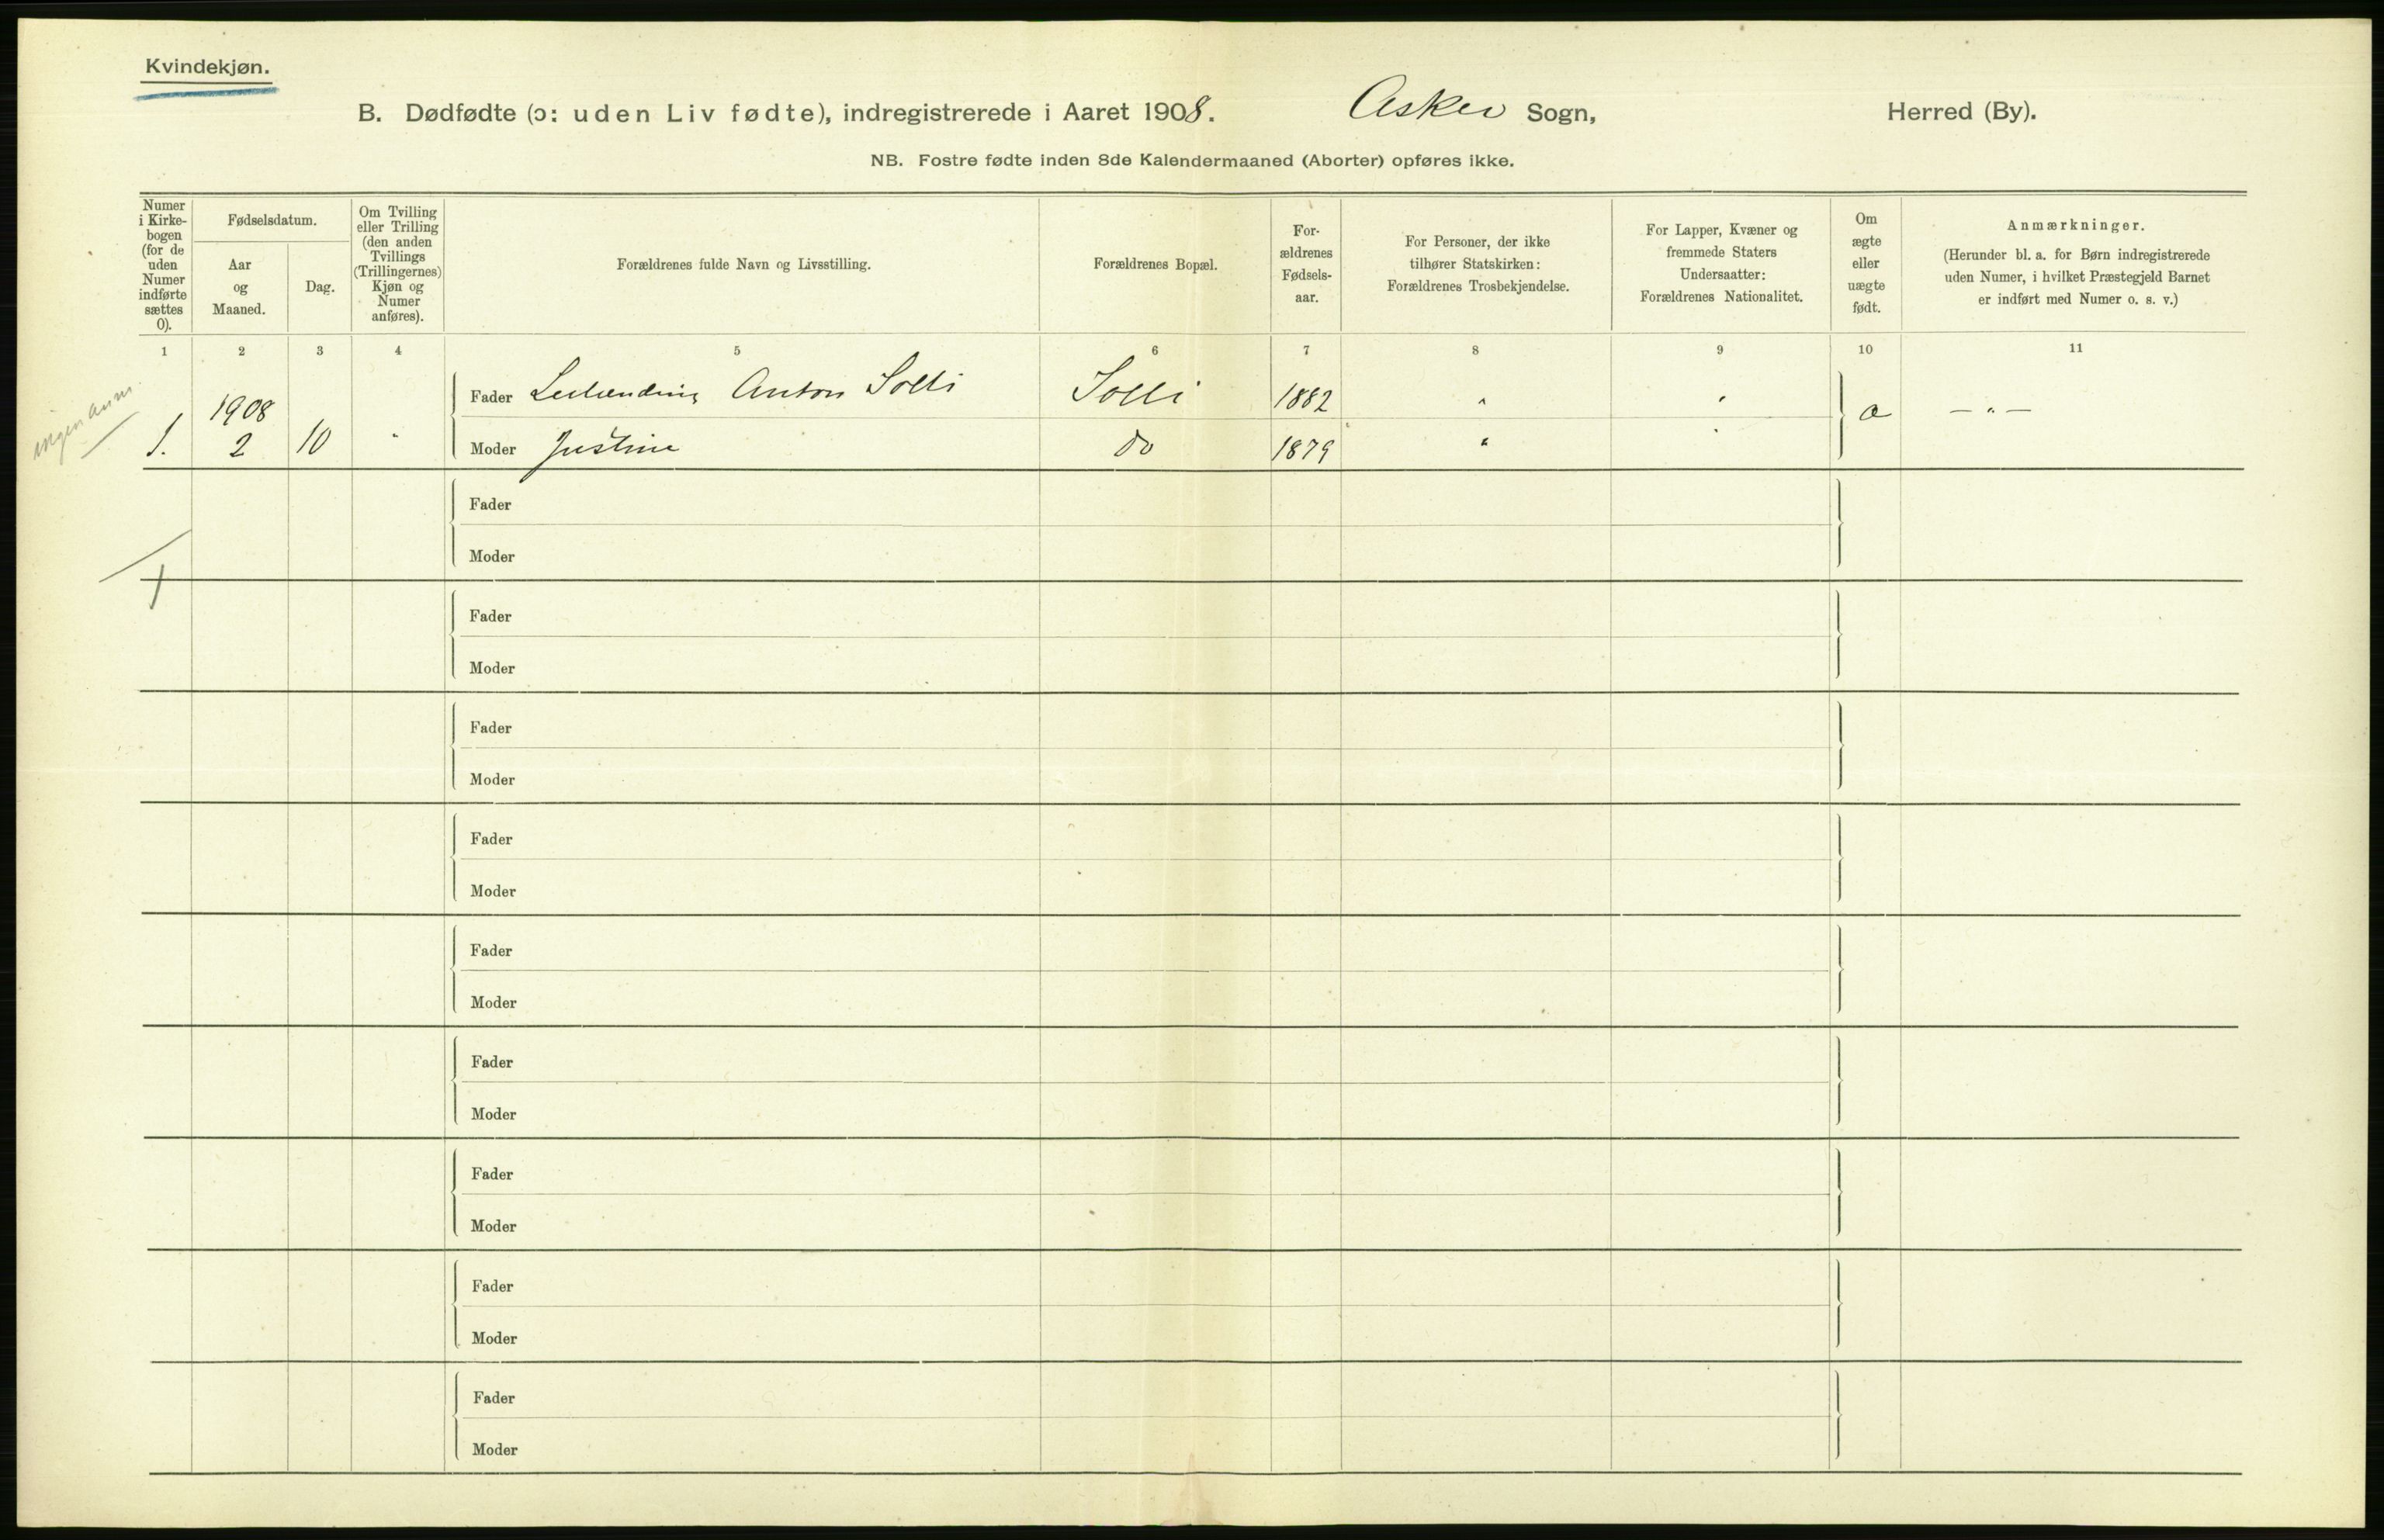 Kvindekjøn.
B. Dødfødte (ɔ: uden Liv fødte), indregistrerede i Aaret 1908. Asker Sogn, Herred (By).
NB. Fostre fødte inden 8de Kalendermaaned (Aborter) opføres ikke.
Numer
i Kirke-
bogen
(for de
uden
Numer
indførte
sættes
0).
Fødselsdatum.
Aar
og
Maaned.
Dag.
Om Tvilling
eller Trilling
(den anden
Tvillings
(Trillingernes)
Kjøn og
Numer
anføres).
Forældrenes fulde Navn og Livsstilling.
Forældrenes Bopæl.
For-
ældrenes
Fødsels-
aar.
For Personer, der ikke
tilhører Statskirken:
Forældrenes Trosbekjendelse.
For Lapper, Kvæner og
fremmede Staters
Undersaatter:
Forældrenes Nationalitet.
Om
ægte
eller
uægte
født.
Anmærkninger.
(Herunder bl. a. for Børn indregistrerede
uden Numer, i hvilket Præstegjeld Barnet
er indført med Numer o. s. v.)
1 2 3 4 5 6 7 8 9 10 11
ingen anm.
1908
Fader Anton Solli Solli 1882 " " a — " —
1. 2 10 " Moder Justine do 1879 " "
Fader
Moder
1
Fader
Moder
Fader
Moder
Fader
Moder
Fader
Moder
Fader
Moder
Fader
Moder
Fader
Moder
Fader
Moder